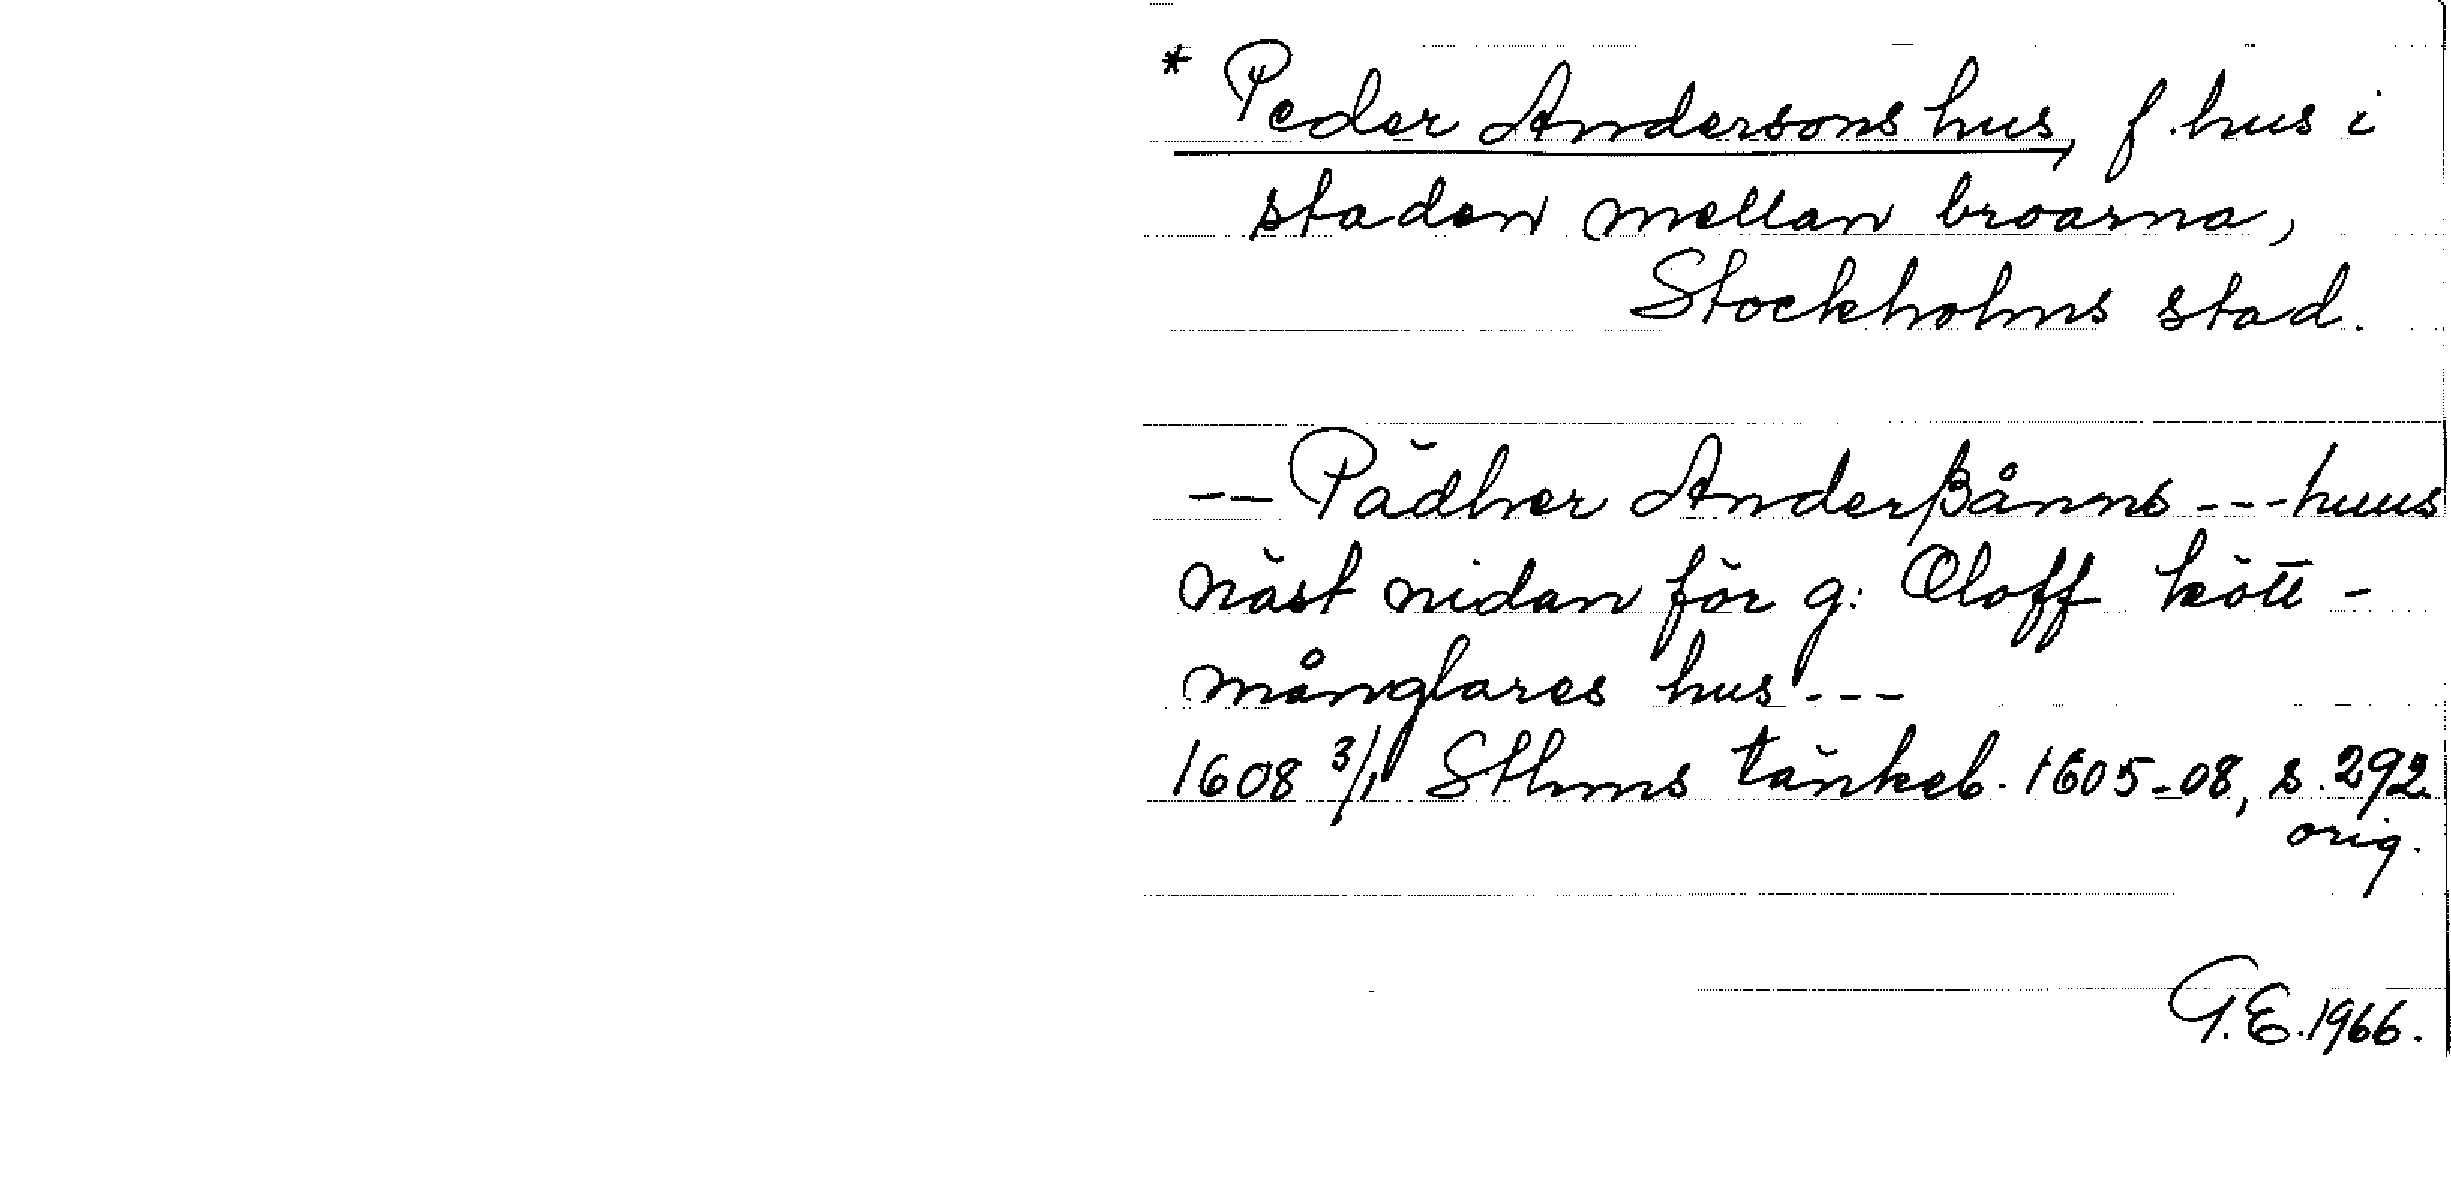 * Peder Andersons hus, f. hus i
staden mellan broarna,
Stockholms stad.
-- Pädher Anderßånns --- huus
näst nidan för g: Oloff kött-
månglares hus ---
1608 3/1 Sthms tänkeb. 1605-08, s. 292
orig.
G.E. 1966.